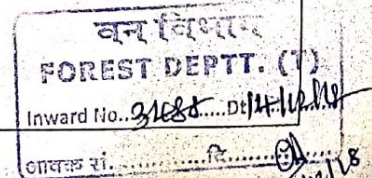 वन विभाग
FOREST DEPTT. (T)
Inward No.. ..Dt 14/12/18
आवक सं. ............दि........